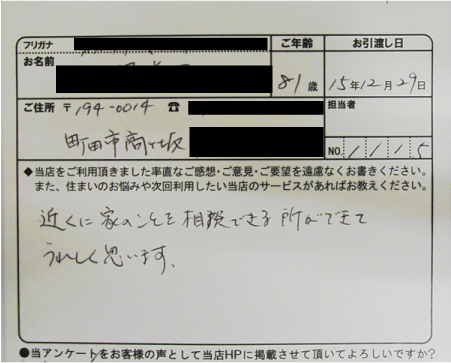 フリガナ
ご年齢
お引渡し日
お名前
81歳
15年12月29日
ご住所 〒194-0014 ☎
担当者
町田市高ヶ坂
NO. 1 1 1 5
◆当店をご利用頂きました率直なご感想・ご意見・ご要望を遠慮なくお書きください。
また、住まいのお悩みや次回利用したい当店のサービスがあればお教えください。
近くに家のことを相談できる所ができて
うれしく思います。
●当アンケートをお客様の声として当店HPに掲載させて頂いてよろしいですか?